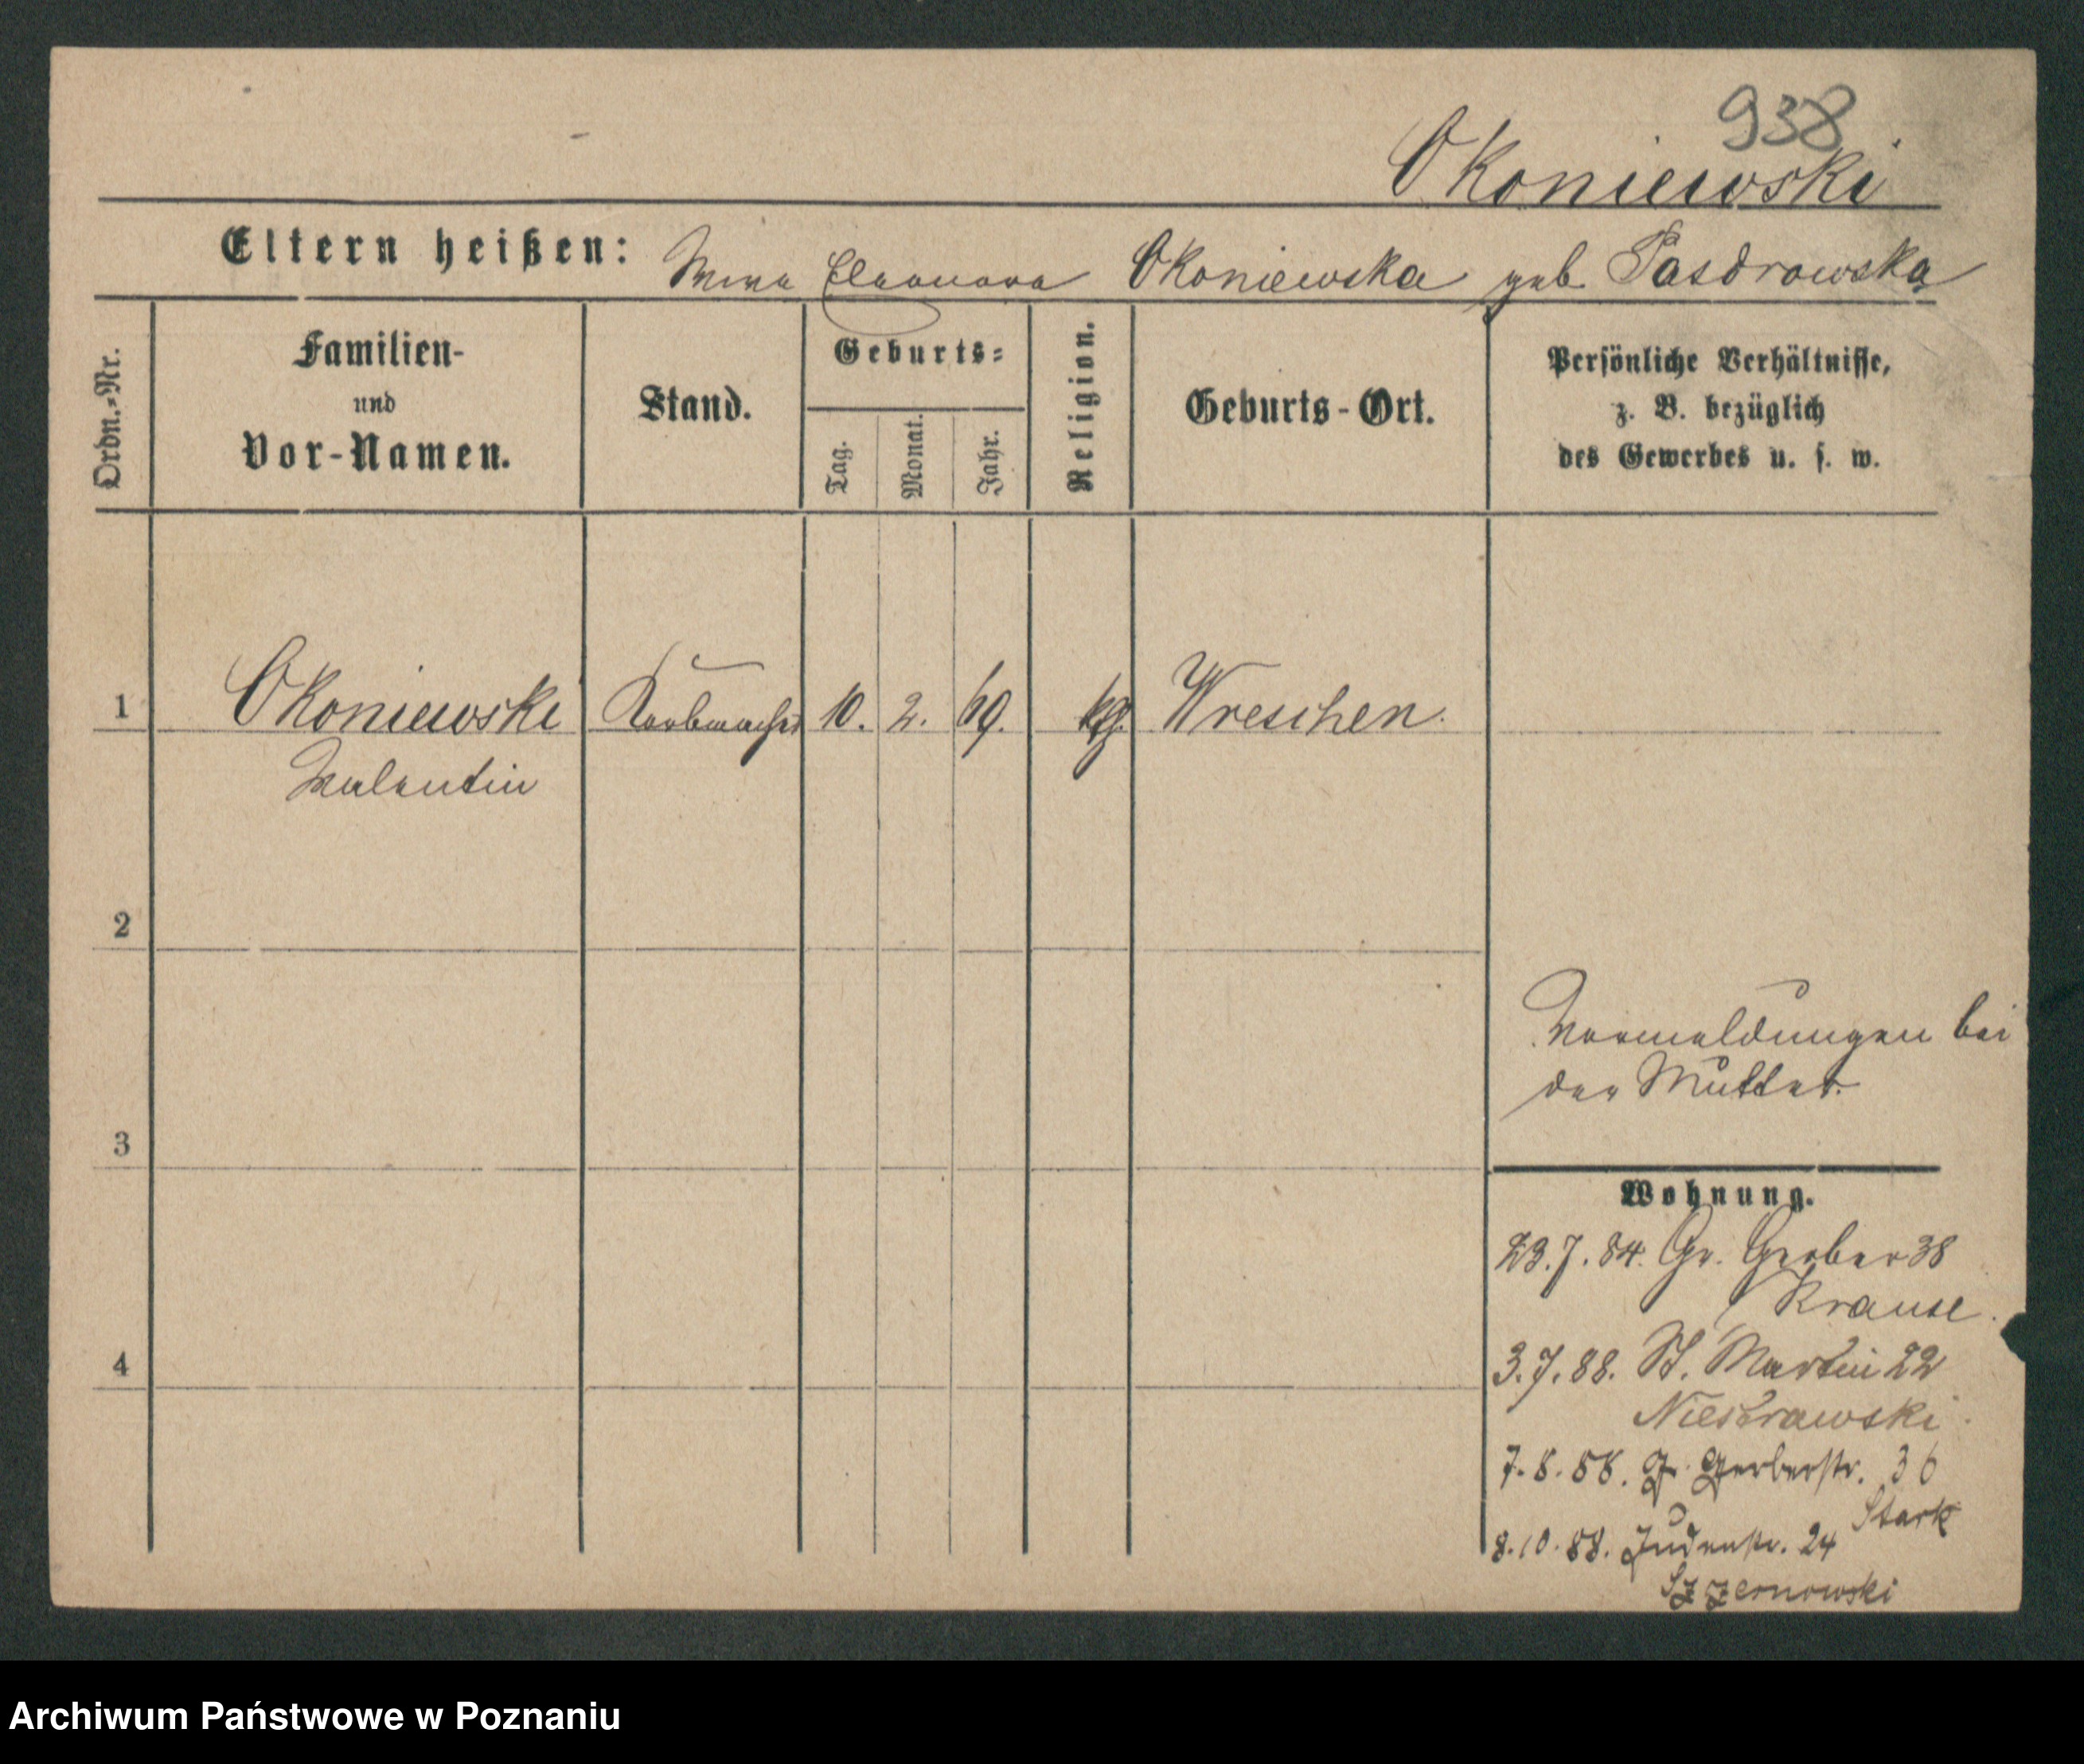 938
Okoniewski
Eltern heißen: Eleonora Okoniewska geb. Pasdrowska
Ordn.-Nr.
Familien-
und
Vor-Namen.
Stand.
Geburts-
Tag.
Monat.
Jahr.
Religion.
Geburts-Ort.
Persönliche Verhältnisse,
z. B. bezüglich
des Gewerbes u. s. w.
1 Okoniewski Korbmacher 10. 2. 69. kth. Wreschen.
Valentin
2
3
4
Vormeldungen bei
der Mutter.
Wohnung.
23.7.84. Gr. Gerber 38
Krause.
3.7.88. St. Martin 22
7.8.88. Gr. Gerberstr. 36
Stark
8.10.88. Judenstr. 24
Szzernowski
Archiwum Państwowe w Poznaniu